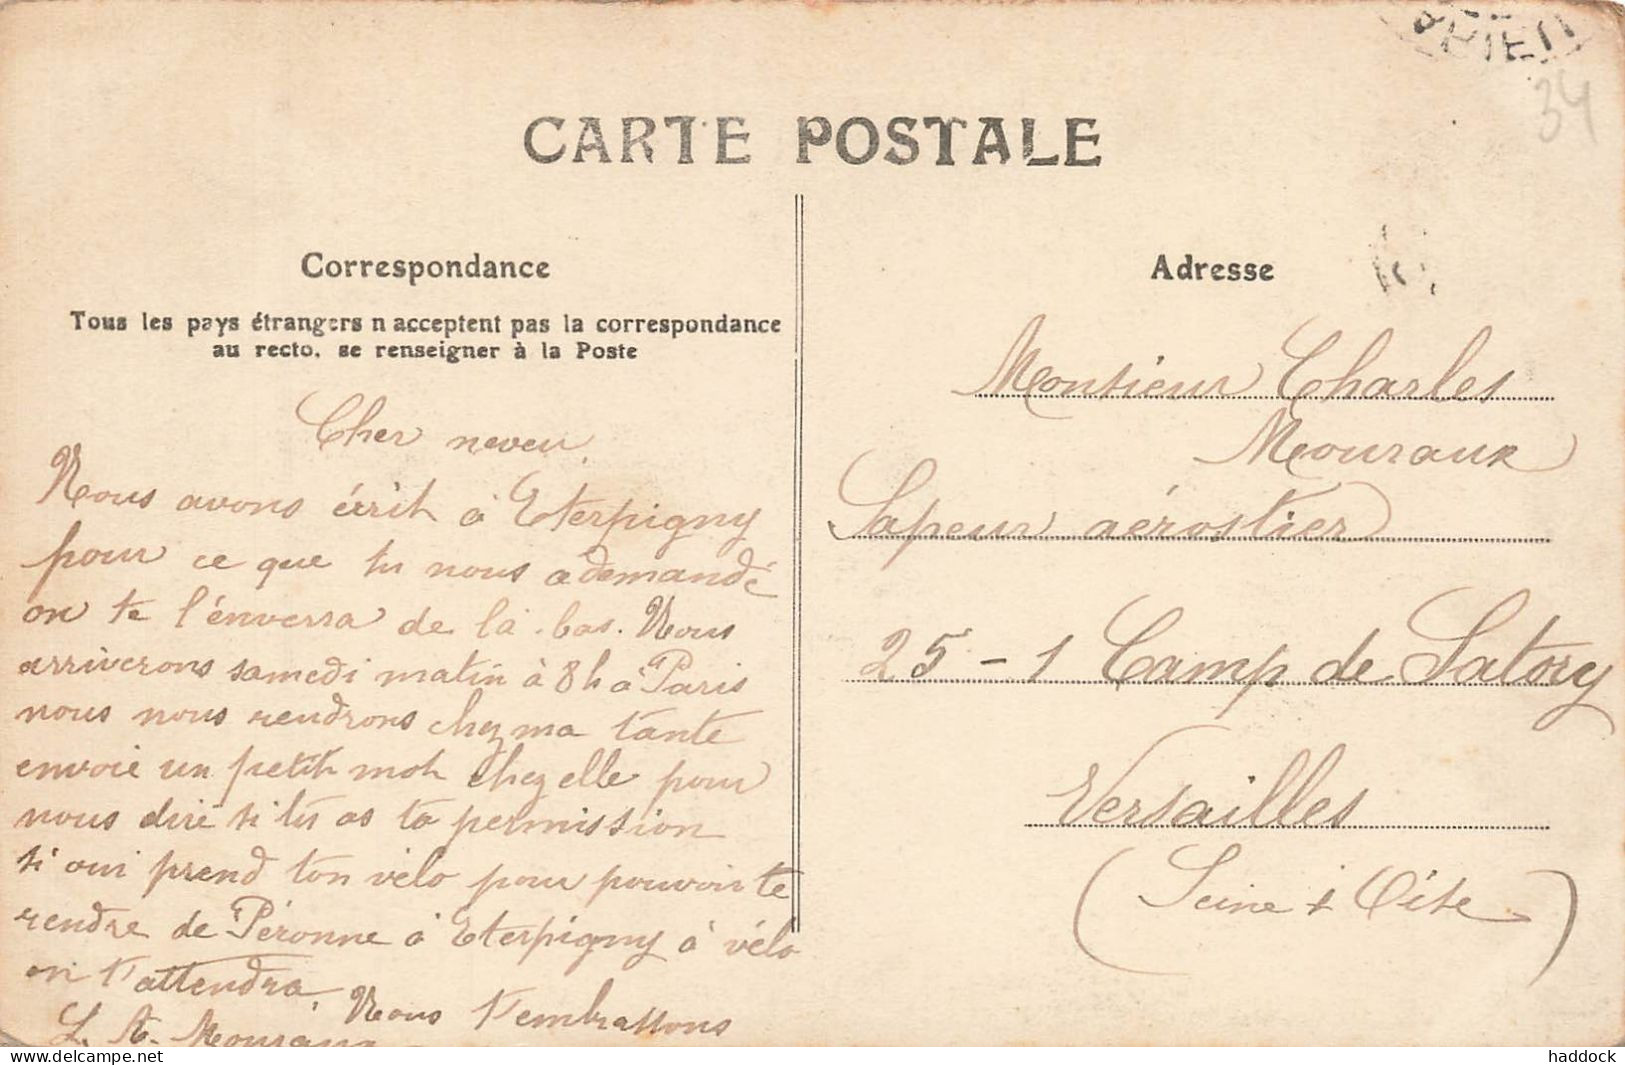 CARTE POSTALE
34
Correspondance
Tous les pays étrangers n acceptent pas la correspondance
au recto, se renseigner à la Poste
Cher neveu.
Nous avons écrit à Eterpigny
pour ce que tu nous a demandé
on te l'énverra de là-bas. Nous
arriverons samedi matin à 8h à Paris
nous nous rendrons chez ma tante
envoie un petit mot chez elle pour
nous dire si tu as ta permission
si oui prend ton vélo pour pouvoir te
rendre de Péronne à Eterpigny à vélo
on t'attendra. Nous t'embrassons
L. A. Mouraux
Adresse
Monsieur Charles
Mouraux
Sapeur aérostier
25-1 Camp de Satory
Versailles
(Seine & Oise)
delcampe.net
haddock